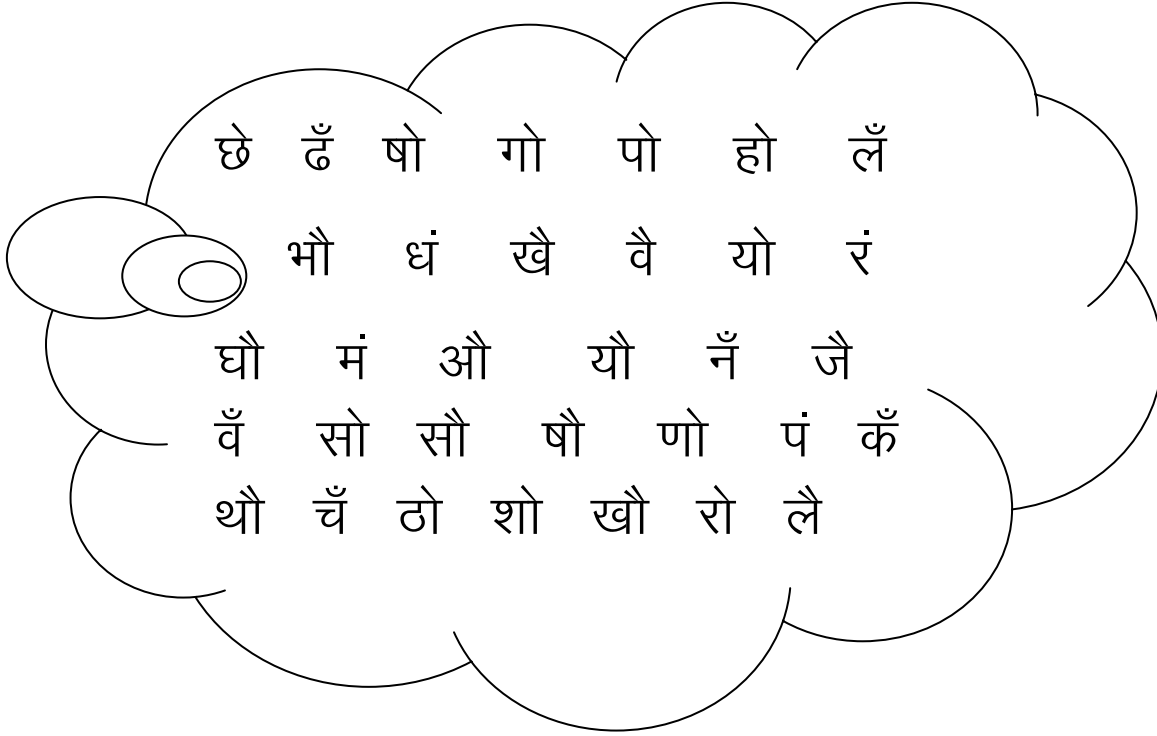 छे ढँ षो गो पो हो लँ
भौ धं खै वै यो रं
घौ मं औ यौ नँ जै
वँ सो सौ षौ णो पं कँ
थौ चँ ठो शो खौ रो लै